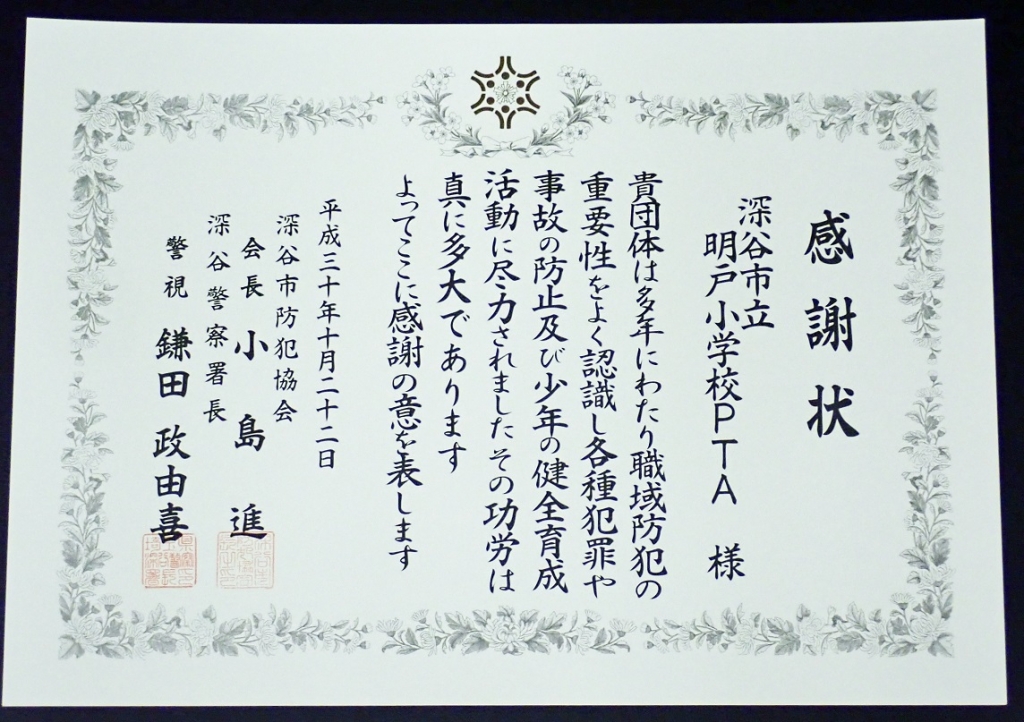 感謝状
深谷市立
明戸小学校PTA 様
貴団体は多年にわたり職域防犯の
重要性をよく認識し各種犯罪や
事故の防止及び少年の健全育成
活動に尽力されましたその功労は
真に多大であります
よってここに感謝の意を表します
平成三十年十月二十二日
深谷市防犯協会
会長 小島 進
深谷警察署長
警視 鎌田 政由喜